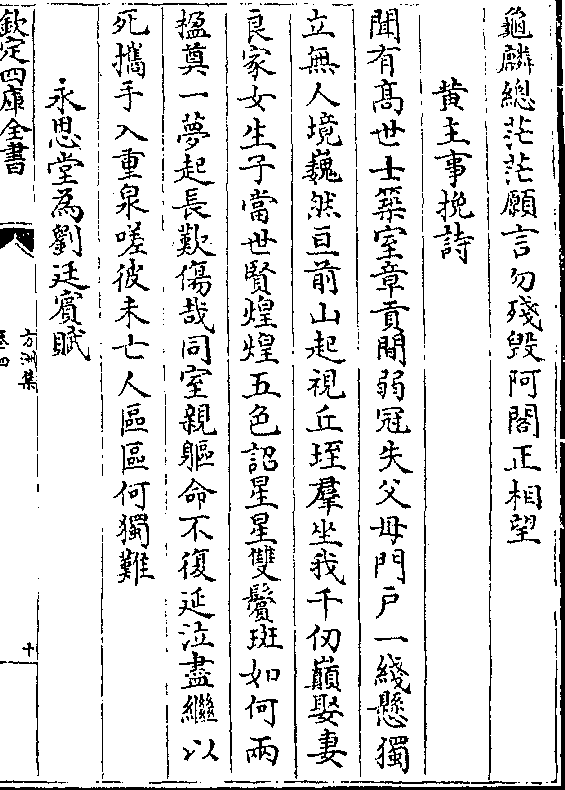 龜麟總茫茫願言勿殘毁阿閣正相望
黄主事挽詩
聞有髙世士築室章貢間弱冠失父母門户一綫懸獨
立無人境巍然亘前山起視丘垤羣坐我千仞巔娶妻
良家女生子當世賢煌煌五色詔星星雙鬢斑如何兩
楹奠一夢起長歎傷哉同室親軀命不復延泣盡繼以
死攜手入重泉嗟彼未亡人區區何獨難
永思堂為劉廷賓賦
欽定四庫全書
方洲集
卷四
十